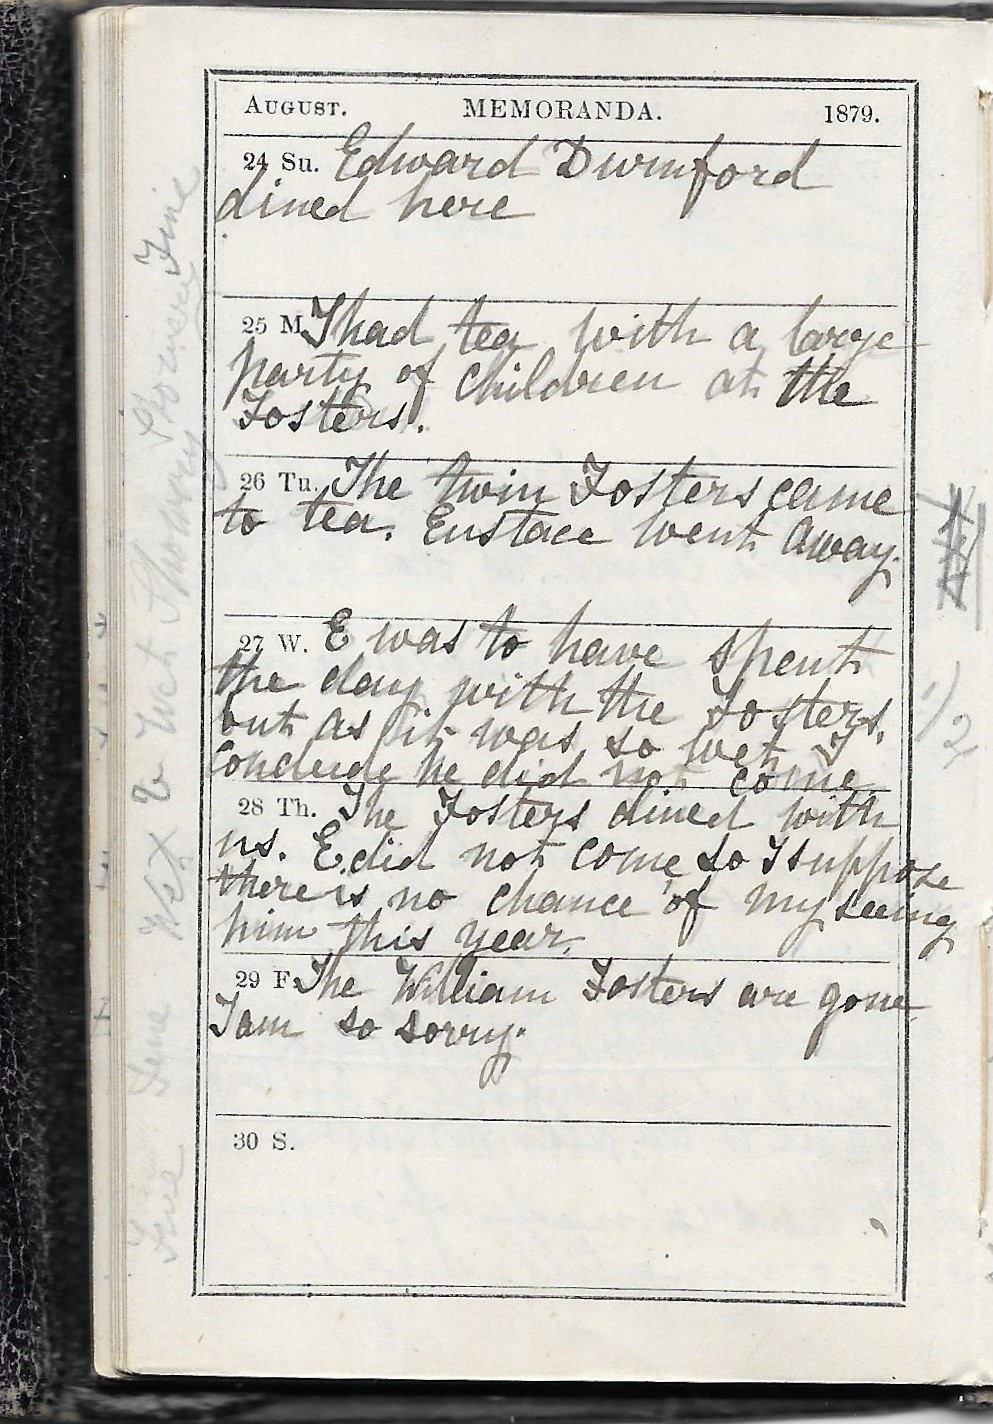 AUGUST. MEMORANDA. 1879.
24 Su. Edward Durnford
dined here
25 M. I had tea with a large
party of children at the
Fosters.
26 Tu. The twin Fosters came
to tea. Eustace went away.
27 W. E was to have spent
the day with the Fosters,
but as it was so wet I
conclude he did not come
28 Th. The Fosters dined with
us. E did not come so I suppose
there is no chance of my seeing
him this year.
29 F. The William Fosters are gone
I am so sorry.
30 S.
Fine
Showery
Wet
Fine
Fine
1/2